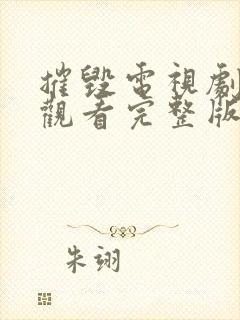 摧毀電視劇
觀看完整版
朱翊